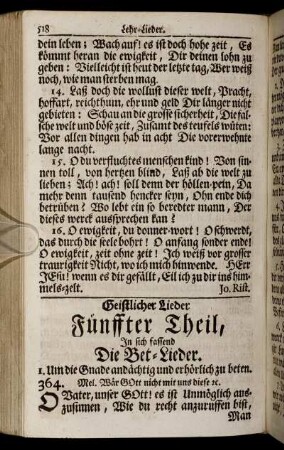 518 Lehr-Lieder.
dein leben; Wach auf! es ist doch hohe zeit, Es
kömmt heran die ewigkeit, Dir deinen lohn zu
geben: Vielleicht ist heut der letzte tag, Wer weiß
noch, wie man sterben mag.
14. Laß doch die wollust dieser welt, Pracht,
hoffart, reichthum, ehr und geld Dir länger nicht
gebieten: Schau an die grosse sicherheit, Die fal-
sche welt und böse zeit, Zusamt des teufels wüten:
Vor allen dingen hab in acht Die vorerwehnte
lange nacht.
15. O du verfluchtes menschen kind! Von sin-
nen toll, von hertzen blind, Laß ab die welt zu
lieben; Ach! ach! soll denn der höllen-pein, Da
mehr denn tausend hencker seyn, Ohn ende dich
betrüben? Wo lebt ein so beredter mann, Der
dieses werck aussprechen kan?
16. O ewigkeit, du donner-wort! O schwerdt,
das durch die seele bohrt! O anfang sonder ende!
O ewigkeit, zeit ohne zeit! Ich weiß vor grosser
traurigkeit Nicht, wo ich mich hinwende. HErr
JEsu! wenn es dir gefällt, Eil ich zu dir ins him-
mels-zelt. Jo. Rist.
Geistlicher Lieder
Fünffter Theil,
In sich fassend
Die Bet-Lieder.
1. Um die Gnade andächtig und erhörlich zu beten.
364. Mel. Wär GOtt nicht mit uns diese ꝛc.
O Vater, unser GOtt! es ist Unmöglich aus-
zusinnen, Wie du recht anzuruffen bist,
Man